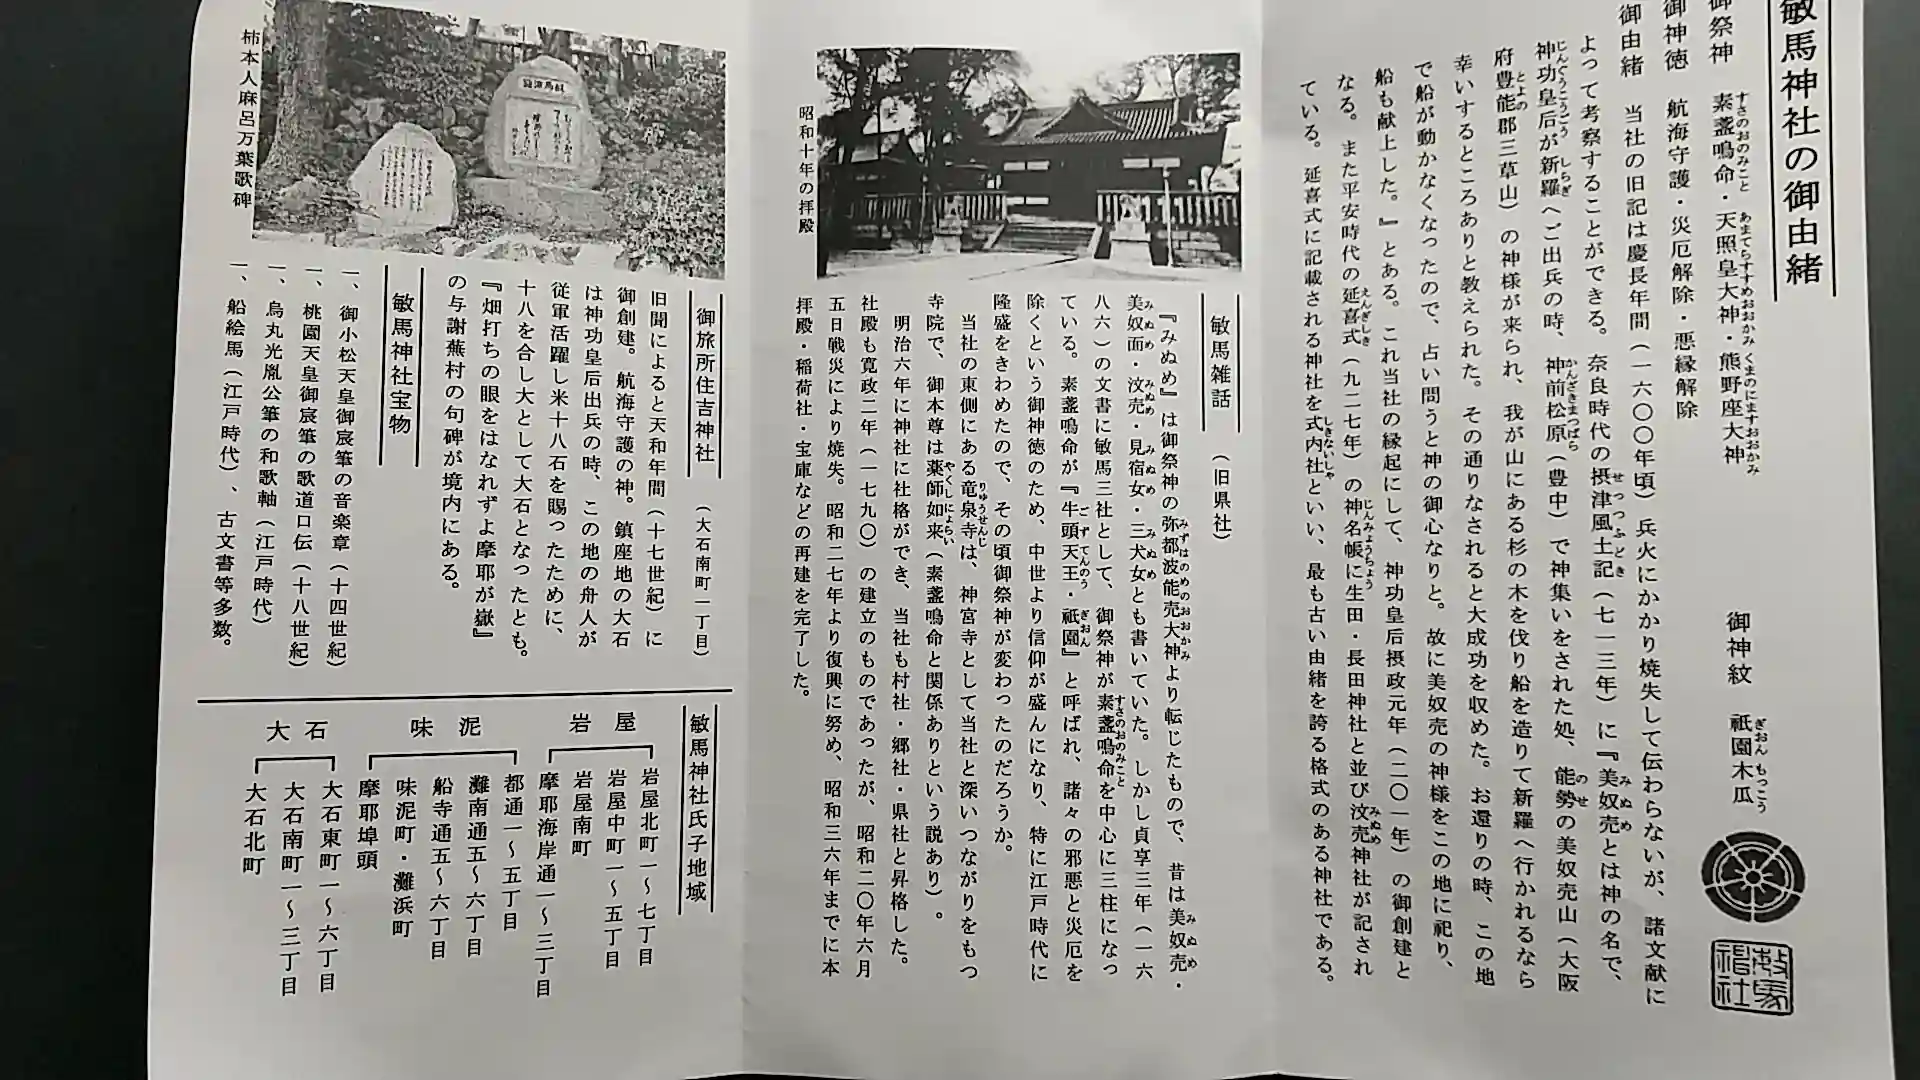 敏馬神社の御由緒
御祭神　素盞鳴命・天照皇大神・熊野座大神
御神徳　航海守護・災厄解除・悪縁解除
御神紋　祇園木瓜
敏馬神社
御由緒　当社の旧記は慶長年間（一六〇〇年頃）兵火にかかり焼失して伝わらないが、諸文献に
よって考察することができる。奈良時代の摂津風土記（七一三年）に『美奴売とは神の名で、
神功皇后が新羅へご出兵の時、神前松原（豊中）で神集いをされた処、能勢の美奴売山（大阪
府豊能郡三草山）の神様が来られ、我が山にある杉の木を伐り船を造りて新羅へ行かれるなら
幸いするところありと教えられた。その通りなされると大成功を収めた。お還りの時、この地
で船が動かなくなったので、占い問うと神の御心なりと。故に美奴売の神様をこの地に祀り、
船も献上した。』とある。これ当社の縁起にして、神功皇后摂政元年（二〇一年）の御創建と
なる。また平安時代の延喜式（九二七年）の神名帳に生田・長田神社と並び汶売神社が記され
ている。延喜式に記載される神社を式内社といい、最も古い由緒を誇る格式のある神社である。
昭和十年の拝殿
敏馬雑話（旧県社）
『みぬめ』は御祭神の弥都波能売大神より転じたもので、昔は美奴売・
美奴面・汶売・見宿女・三犬女とも書いていた。しかし貞享三年（一六
八六）の文書に敏馬三社として、御祭神が素盞鳴命を中心に三柱になっ
ている。素盞鳴命が『牛頭天王・祇園』と呼ばれ、諸々の邪悪と災厄を
除くという御神徳のため、中世より信仰が盛んになり、特に江戸時代に
隆盛をきわめたので、その頃御祭神が変わったのだろうか。
当社の東側にある竜泉寺は、神宮寺として当社と深いつながりをもつ
寺院で、御本尊は薬師如来（素盞鳴命と関係ありという説あり）。
明治六年に神社に社格ができ、当社も村社・郷社・県社と昇格した。
社殿も寛政二年（一七九〇）の建立のものであったが、昭和二〇年六月
五日戦災により焼失。昭和二七年より復興に努め、昭和三六年までに本
拝殿・稲荷社・宝庫などの再建を完了した。
柿本人麻呂万葉歌碑
御旅所住吉神社（大石南町一丁目）
旧聞によると天和年間（十七世紀）に
御創建。航海守護の神。鎮座地の大石
は神功皇后出兵の時、この地の舟人が
従軍活躍し米十八石を賜ったために、
十八を合し大として大石となったとも。
『畑打ちの眼をはなれずよ摩耶が嶽』
の与謝蕪村の句碑が境内にある。
敏馬神社宝物
一、御小松天皇御宸筆の音楽章（十四世紀）
一、桃園天皇御宸筆の歌道口伝（十八世紀）
一、烏丸光胤公筆の和歌軸（江戸時代）
一、船絵馬（江戸時代）、古文書等多数。
敏馬神社氏子地域
岩屋
岩屋北町一〜七丁目
岩屋中町一〜五丁目
岩屋南町
摩耶海岸通一〜三丁目
味泥
都通一〜五丁目
灘南通五〜六丁目
船寺通五〜六丁目
味泥町・灘浜町
摩耶埠頭
大石
大石東町一〜六丁目
大石南町一〜三丁目
大石北町